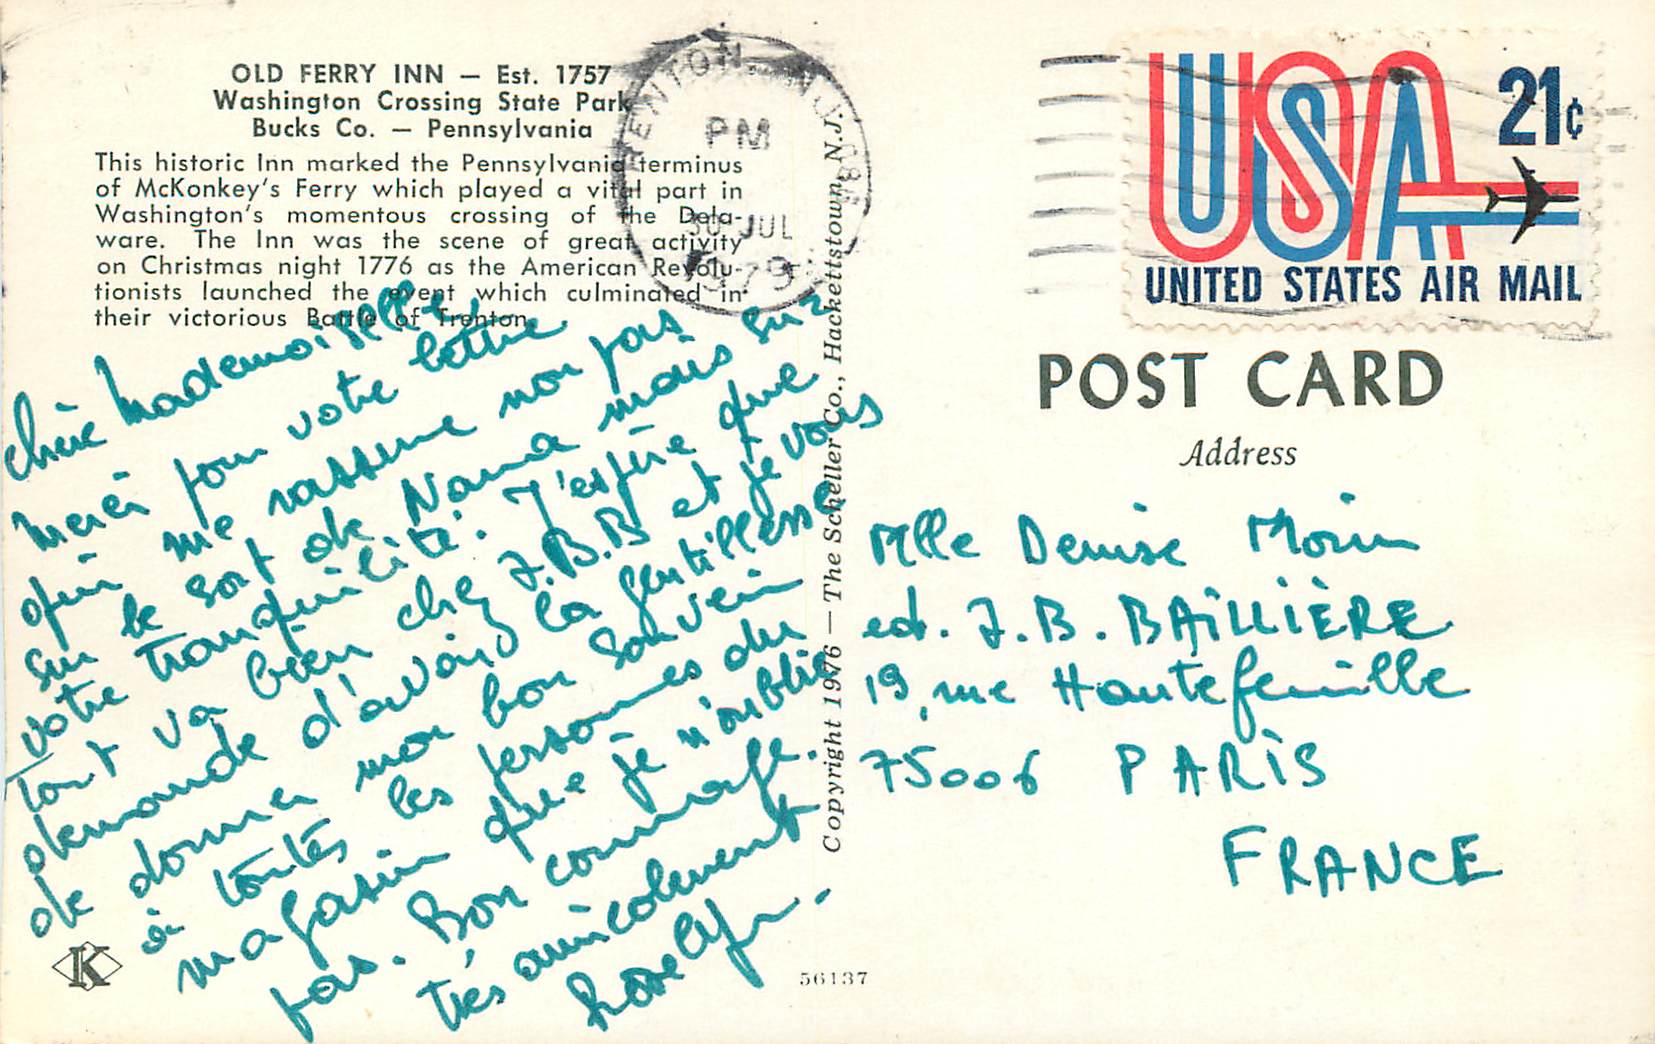 OLD FERRY INN — Est. 1757
Washington Crossing State Park
Bucks Co. — Pennsylvania
This historic Inn marked the Pennsylvania terminus
of McKonkey's Ferry which played a vital part in
Washington's momentous crossing of the Dela-
ware. The Inn was the scene of great activity
on Christmas night 1776 as the American Revolu-
tionists launched the event which culminated in
their victorious Battle of Trenton.
Chère Mademoiselle,
Merci pour votre lettre
qui me rassure non pas
sur le sort de Nana mais sur
votre tranquilité. J'espère que
tout va bien chez J.B.B et je vous
demande d'avoir la gentillesse
de donner mon bon souvenir
à toutes les personnes du
magasin que je n'oublie
pas. Bon courage.
très amicalement
K
56137
Copyright 1976 — The Scheller Co., Hackettstown, N.J.
TRENTON, NJ
PM
30 JUL
1979
USA 21¢
UNITED STATES AIR MAIL
POST CARD
Address
Mlle Denise Morin
ed. J.B. BAILLIÈRE
19, rue Hautefeuille
75006 PARIS
FRANCE